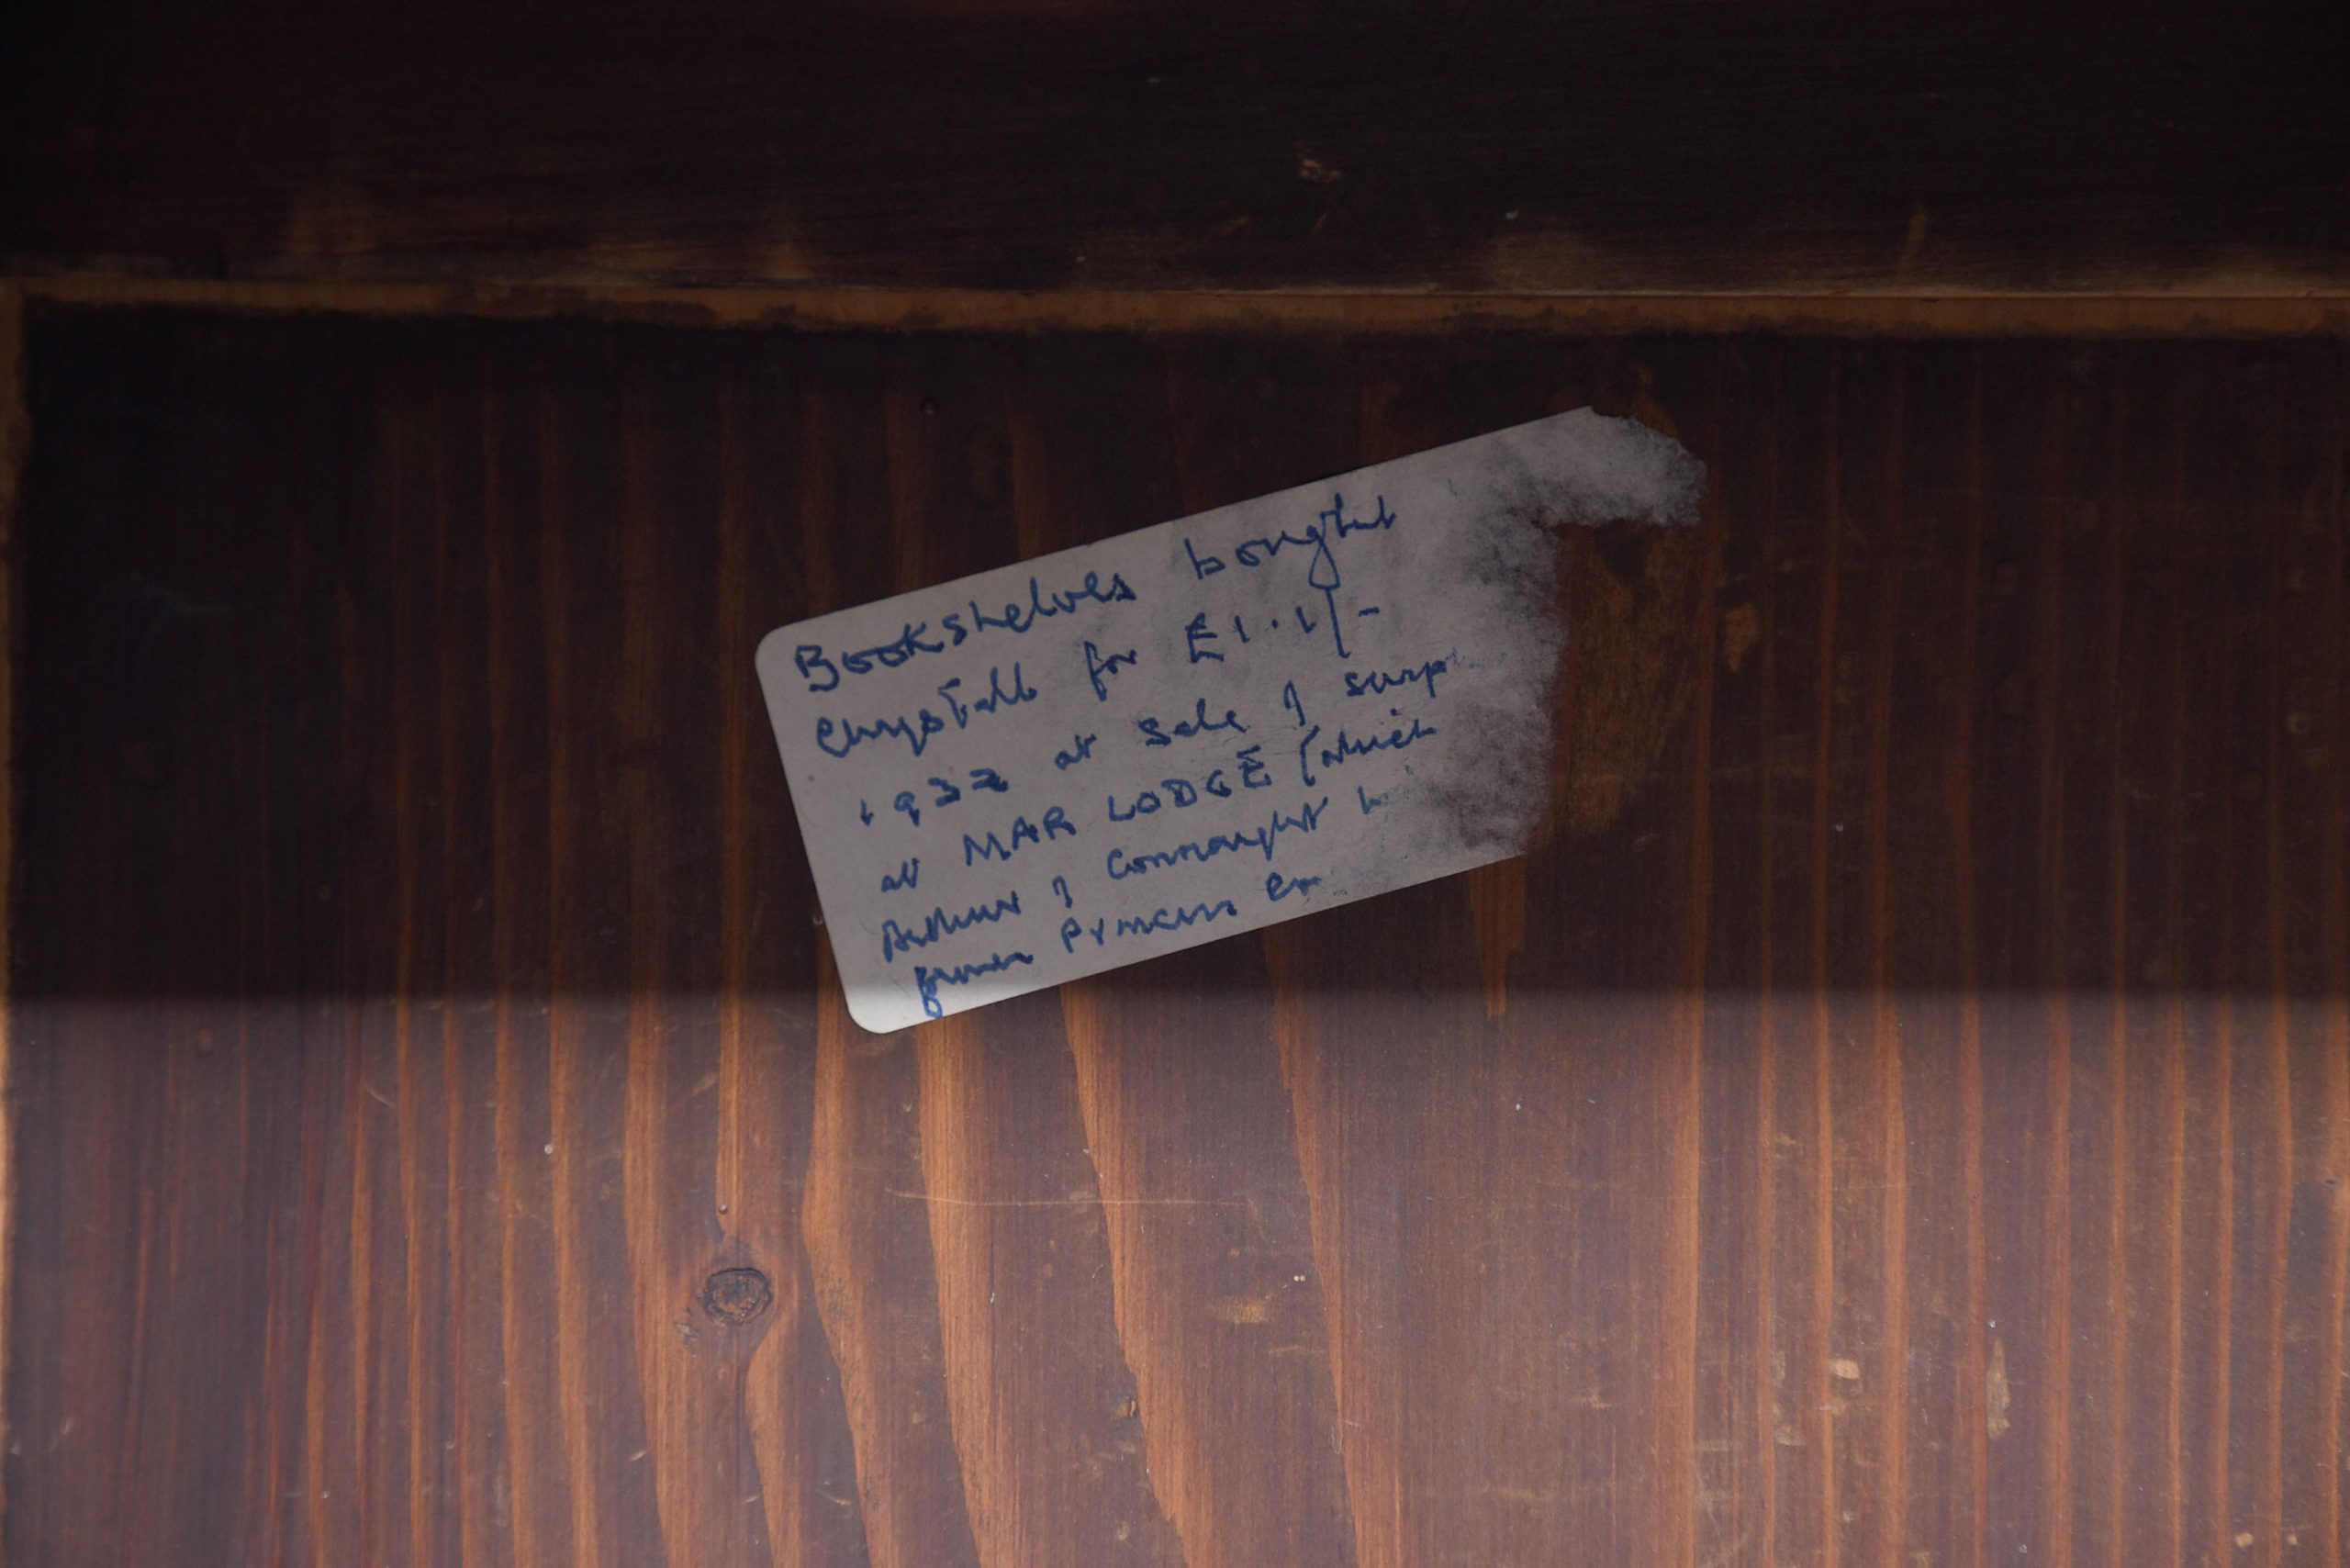 Bookshelves bought
Chrystall for £1.1/-
1932 at sale of surp
at MAR LODGE (which
Arthur of Connaught h
from Princess